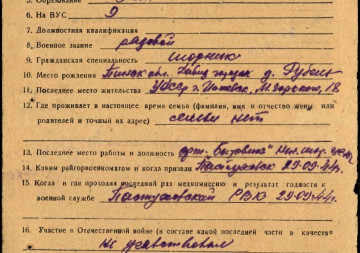 5. Образование
6. На ВУС 9
7. Должностная квалификация
8. Военное звание рядовой
9. Гражданская специальность шорник
10. Место рождения Пинск обл. д. Рубель
11. Последнее место жительства УАССР г. Ижевск, М. Горького, 18
12. Где проживает в настоящее время семья (фамилия, имя и отчество жены или
родителей и точный их адрес) семьи нет
13. Последнее место работы и должность арт.
14. Каким райгорвоенкоматом и когда призван Пастуховск 29.09.44г.
15. Когда и где проходил последний раз медкомиссию и результат годности к
военной службе Пастуховский РВК 29.09.44г.
16. Участие в Отечественной войне (в составе какой последней части в качестве
не участвовал